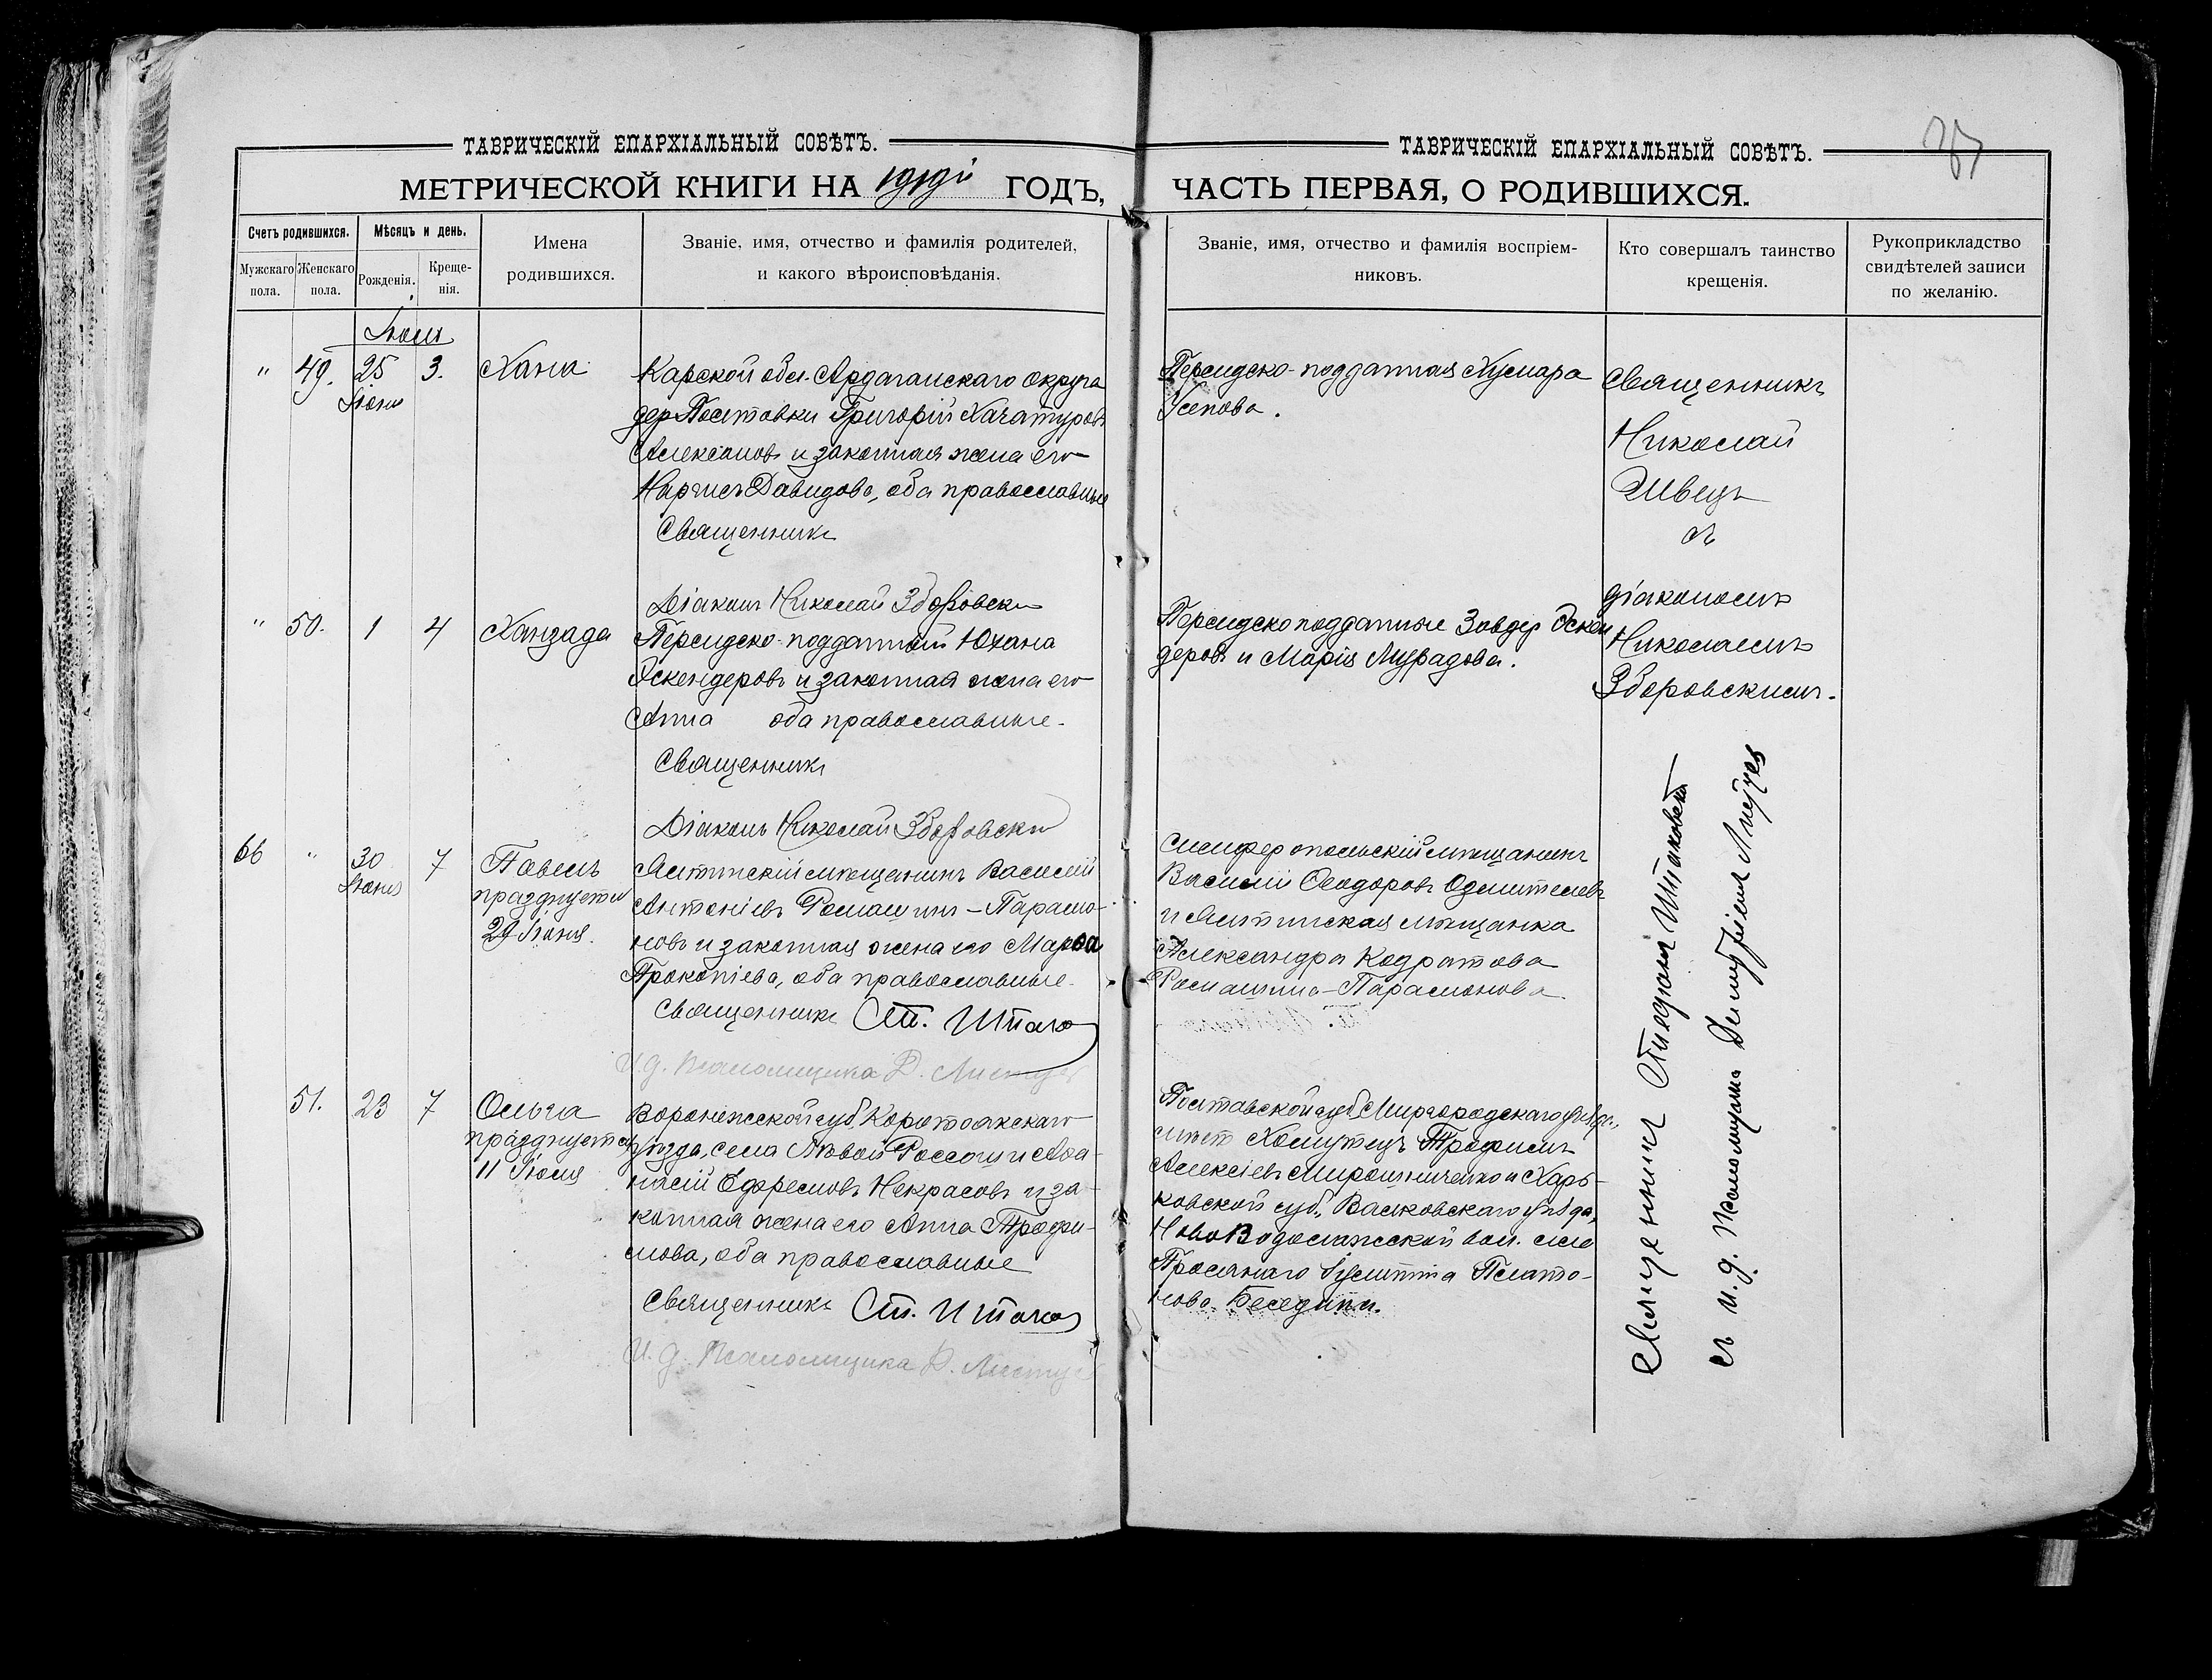 ТАВРИЧЕСКІЙ ЕПАРХІАЛЬНЫЙ СОВѢТЪ.
МЕТРИЧЕСКОЙ КНИГИ НА 1919й ГОДЪ,
Счетъ родившихся.
Мѣсяцъ и день.
Мужскаго пола.
Женскаго пола.
Рожденія.
Креще-
нія.
Имена
родившихся.
Званіе, имя, отчество и фамилія родителей,
и какого вѣроисповѣданія.
Іюль
" 49. 25 3. Хана
Іюня
Карской обл. Ардаганскаго округа
дер. Григорій Хачатуровъ
Алексановъ и законная жена его
Давидова, оба православные
Священникъ
Діаконъ Николай Зборовски
" 50. 1 4 Ханзада
Персидско-подданный Юхана
Эскендеровъ и законная жена его
Анна оба православные.
Священникъ
Діаконъ Николай Зборовски
66 " 30 7 Павелъ
Іюня
празднуетъ
29 Іюня.
Ялтинскій мѣщанинъ Василій
Антоніевъ Ромашинъ-Парамо-
новъ и законная жена его Марѳа
Прокопіева, оба православные.
Священникъ Ст. Штако
И. д. Псаломщика Д.
51. 23 7 Ольга
празднуетъ
11 Іюля
Воронежской губ. Коротоякскаго
уѣзда, села Россоши Аѳа-
насій Ефремовъ Некрасовъ и за-
конная жена его Анна Трофи-
мова, оба православные
Священникъ Ст. Штако
И. д. Псаломщика Д.
ТАВРИЧЕСКІЙ ЕПАРХІАЛЬНЫЙ СОВѢТЪ.
ЧАСТЬ ПЕРВАЯ, О РОДИВШИХСЯ.
Званіе, имя, отчество и фамилія воспріем-
никовъ.
Кто совершалъ таинство
крещенія.
Рукоприкладство
свидѣтелей записи
по желанію.
Персидско-подданная Хумара
Усепова.
Персидско подданные Завдер Эскен
деровъ и Марія Мурадова.
Симферопольскій мѣщанинъ
Василій Ѳеодоровъ
и Ялтинская мѣщанка
Александра Кодратова
Ромашина-Парамонова.
Полтавской губ. Миргородскаго уѣзда,
мѣст. Хомутецъ Трофимъ
Алексіевъ Мирошниченко и Харь-
ковской губ., Валковскаго уѣзда,
Ново Водолажской вол. села
Просянаго Іустина Плато-
нова Беседина.
Священникъ
Николай
Швецъ
съ
діакономъ
Николаемъ
Зборовскимъ.
Священникъ Стефанъ Штаковскій
съ и. д. Псаломщика Димитріемъ